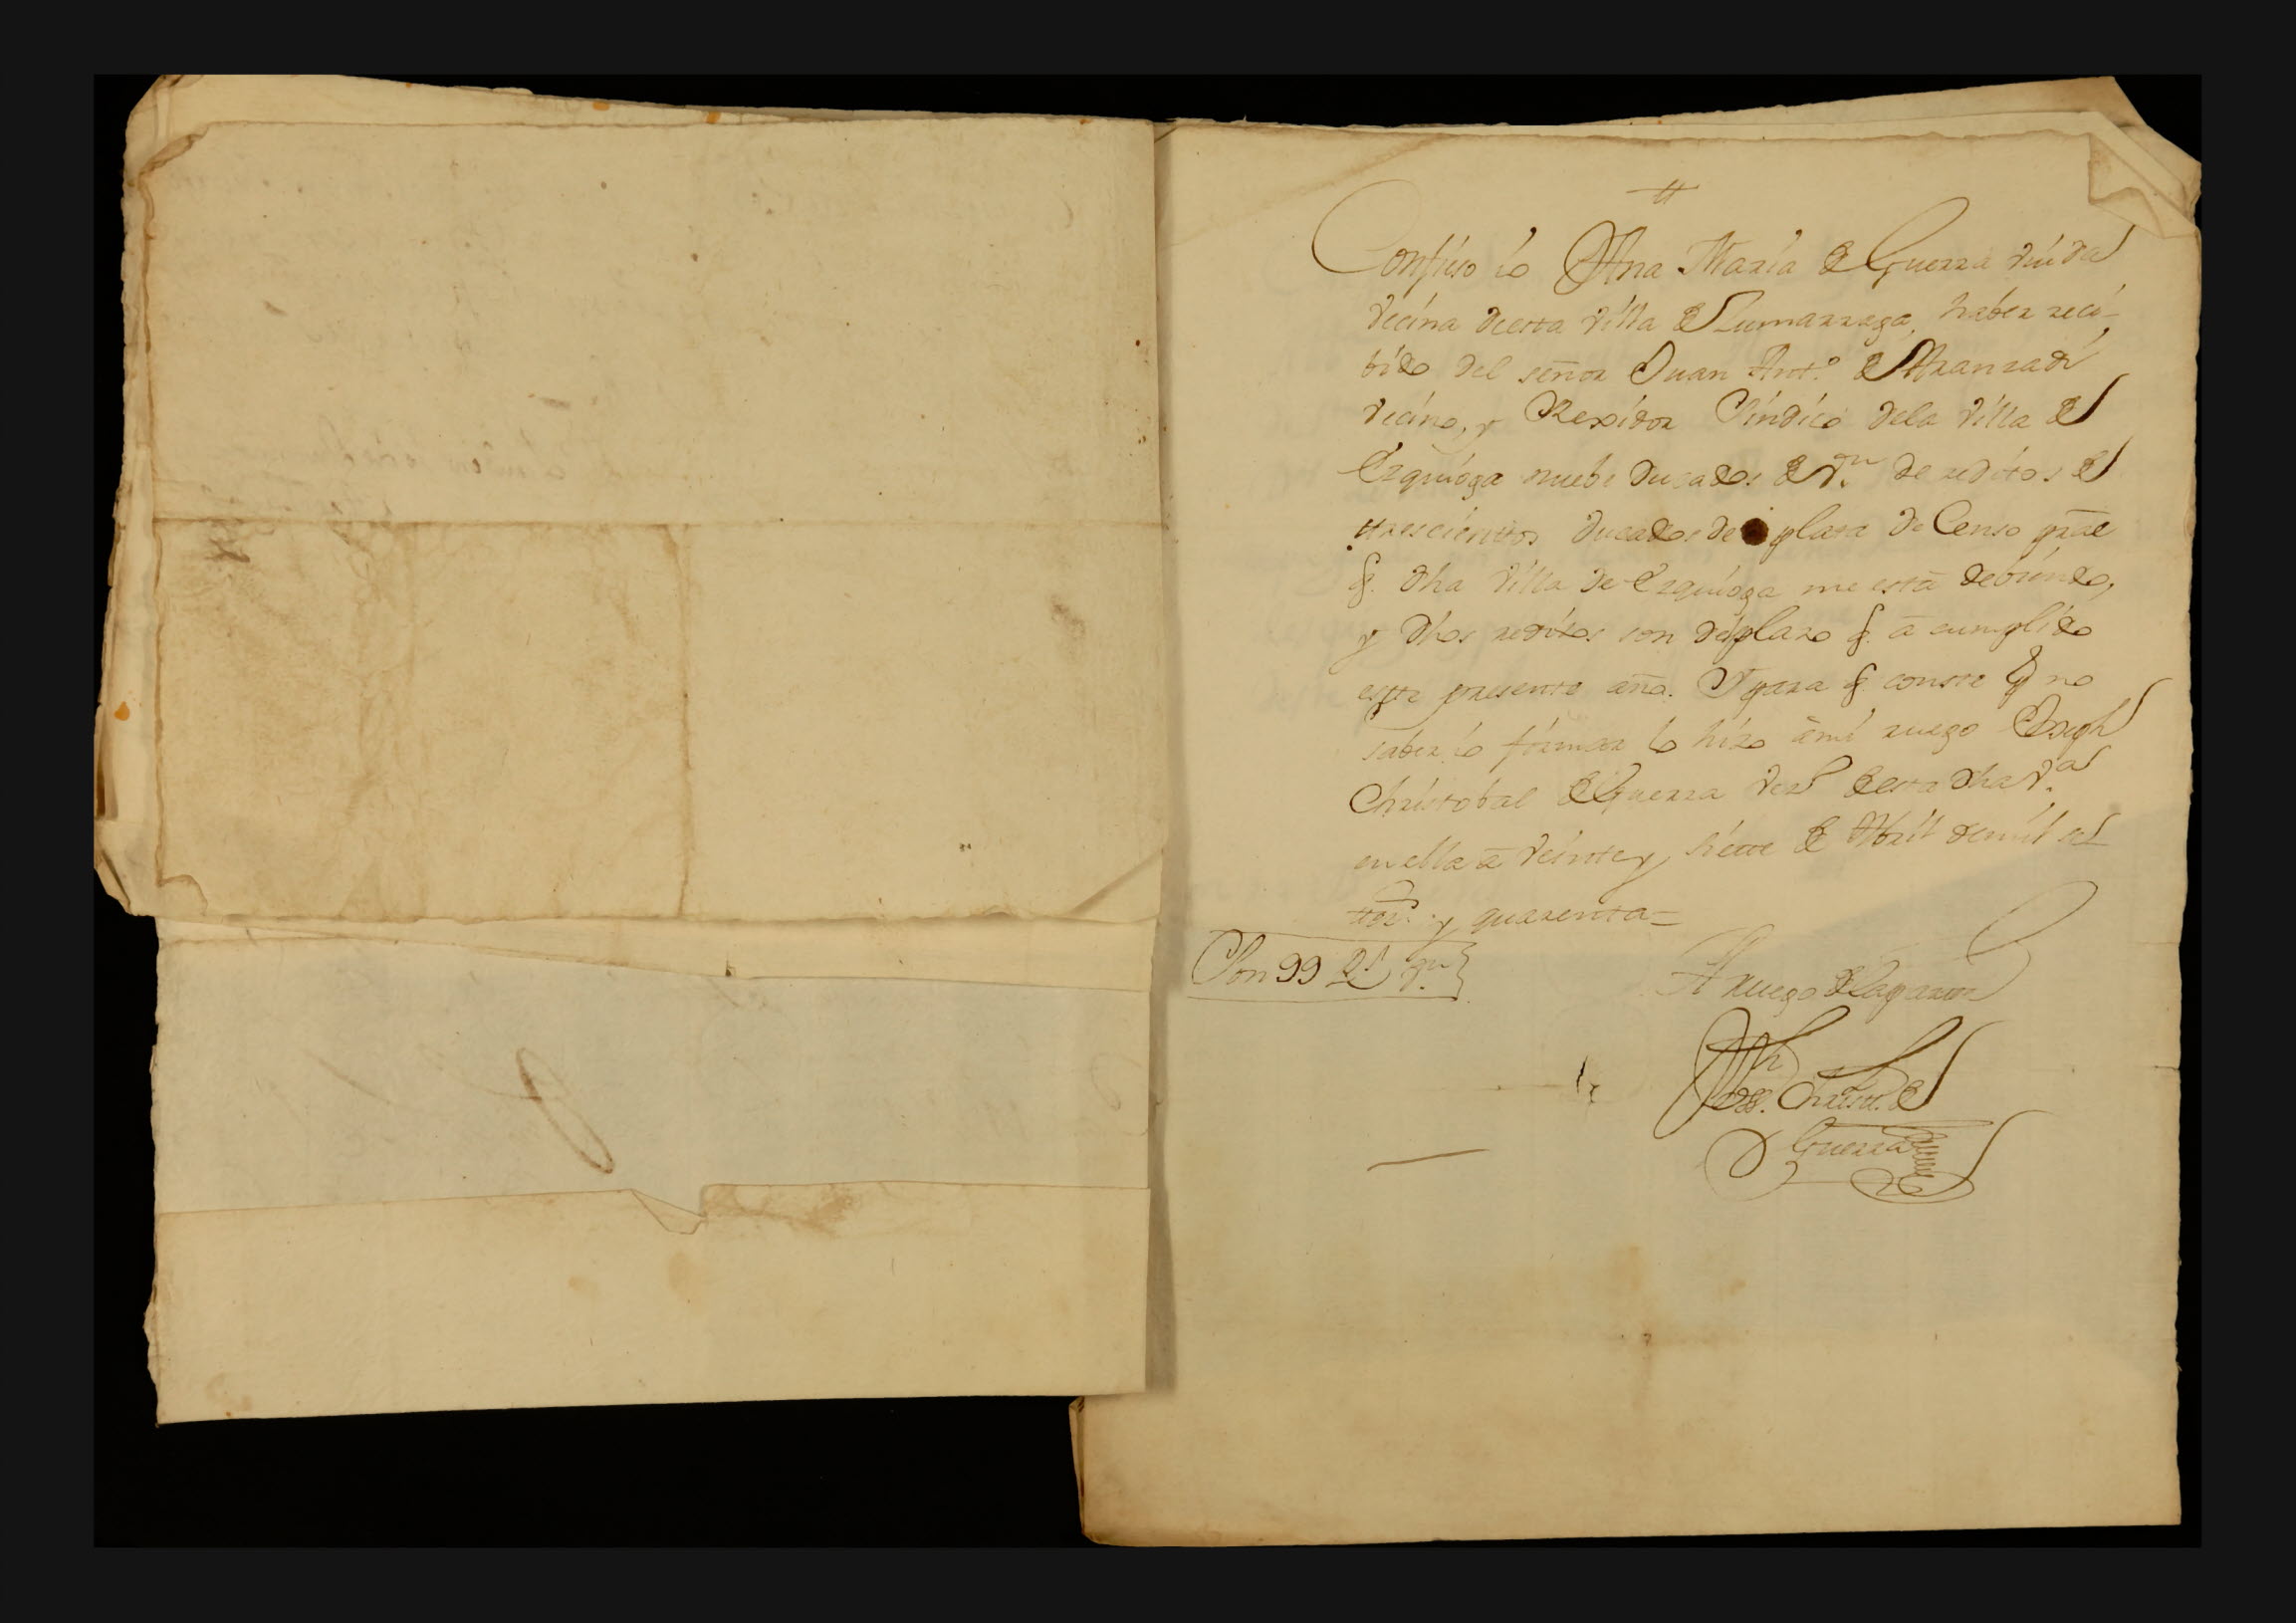 Confieso io Ana Maria de Guerra viuda
vecina desta villa de Lumarraga, haber reci-
bido del señor Juan Antº de Aranzadi
vecino, y Rexidor Sindico dela villa de
Ezquioga nuebe ducados de Vn. de reditos de
ttrescienttos ducados de plata de Censo prāl
q. dha villa de Ezquioga me està debiendo,
y dhos reditos son del plazo q. à cumplido
estte presente año. Y para q. conste y q no
saber io firmar lo hizo àmi ruego Joseph
Christobal de Guerra vezº desta dha Vª
en ella à veinte y siette de Abril demil set
ttos. y quarenta=
Son 99 Rs Vn.
A ruego de la parte
Jph. Christ. de
Guerra